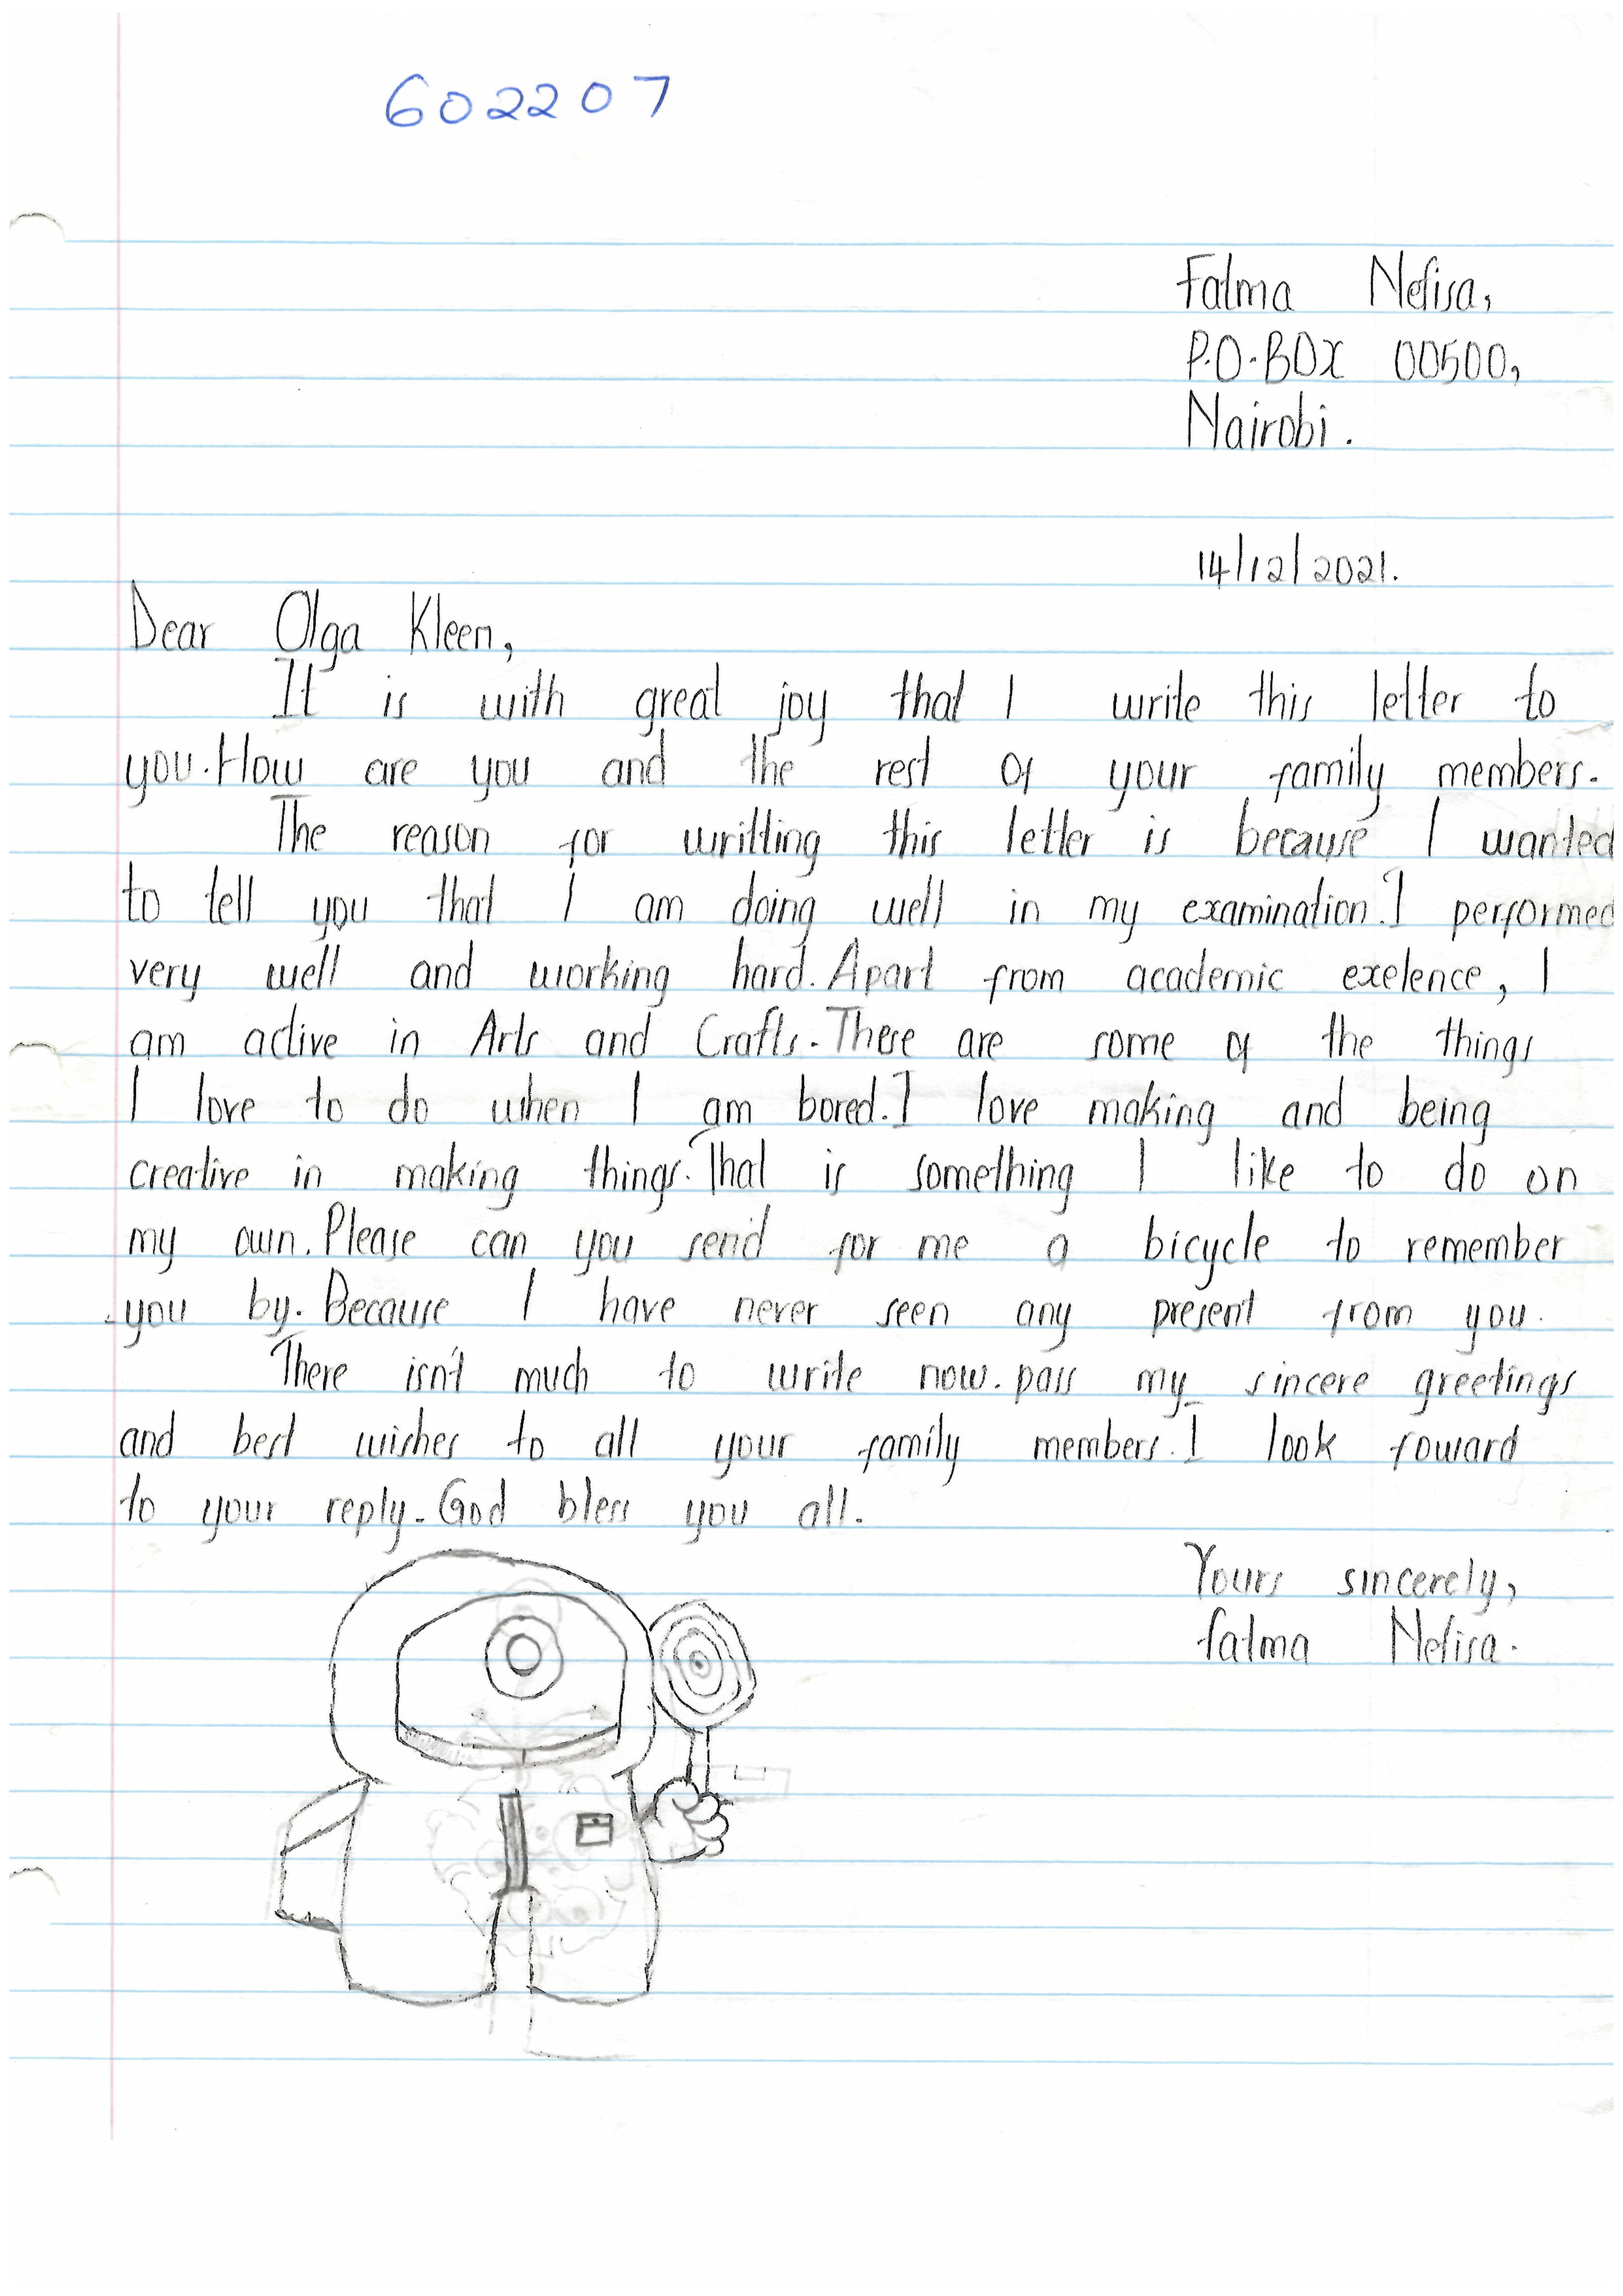 602207
Fatma Nefisa,
P.O.BOX 00500,
Nairobi.
14/12/2021.
Dear Olga Kleen,
It is with great joy that I write this letter to
you. How are you and the rest of your family members.
The reason for writting this letter is because I wanted
to tell you that I am doing well in my examination. I performed
very well and working hard. Apart from academic exelence, I
am active in Arts and Crafts. These are some of the things
I love to do when I am bored. I love making and being
creative in making things. That is something I like to do on
my own. Please can you send for me a bicycle to remember
you by. Because I have never seen any present from you.
There isn't much to write now. pass my sincere greetings
and best wishes to all your family members. I look foward
to your reply. God bless you all.
Yours sincerely,
Fatma Nefisa.